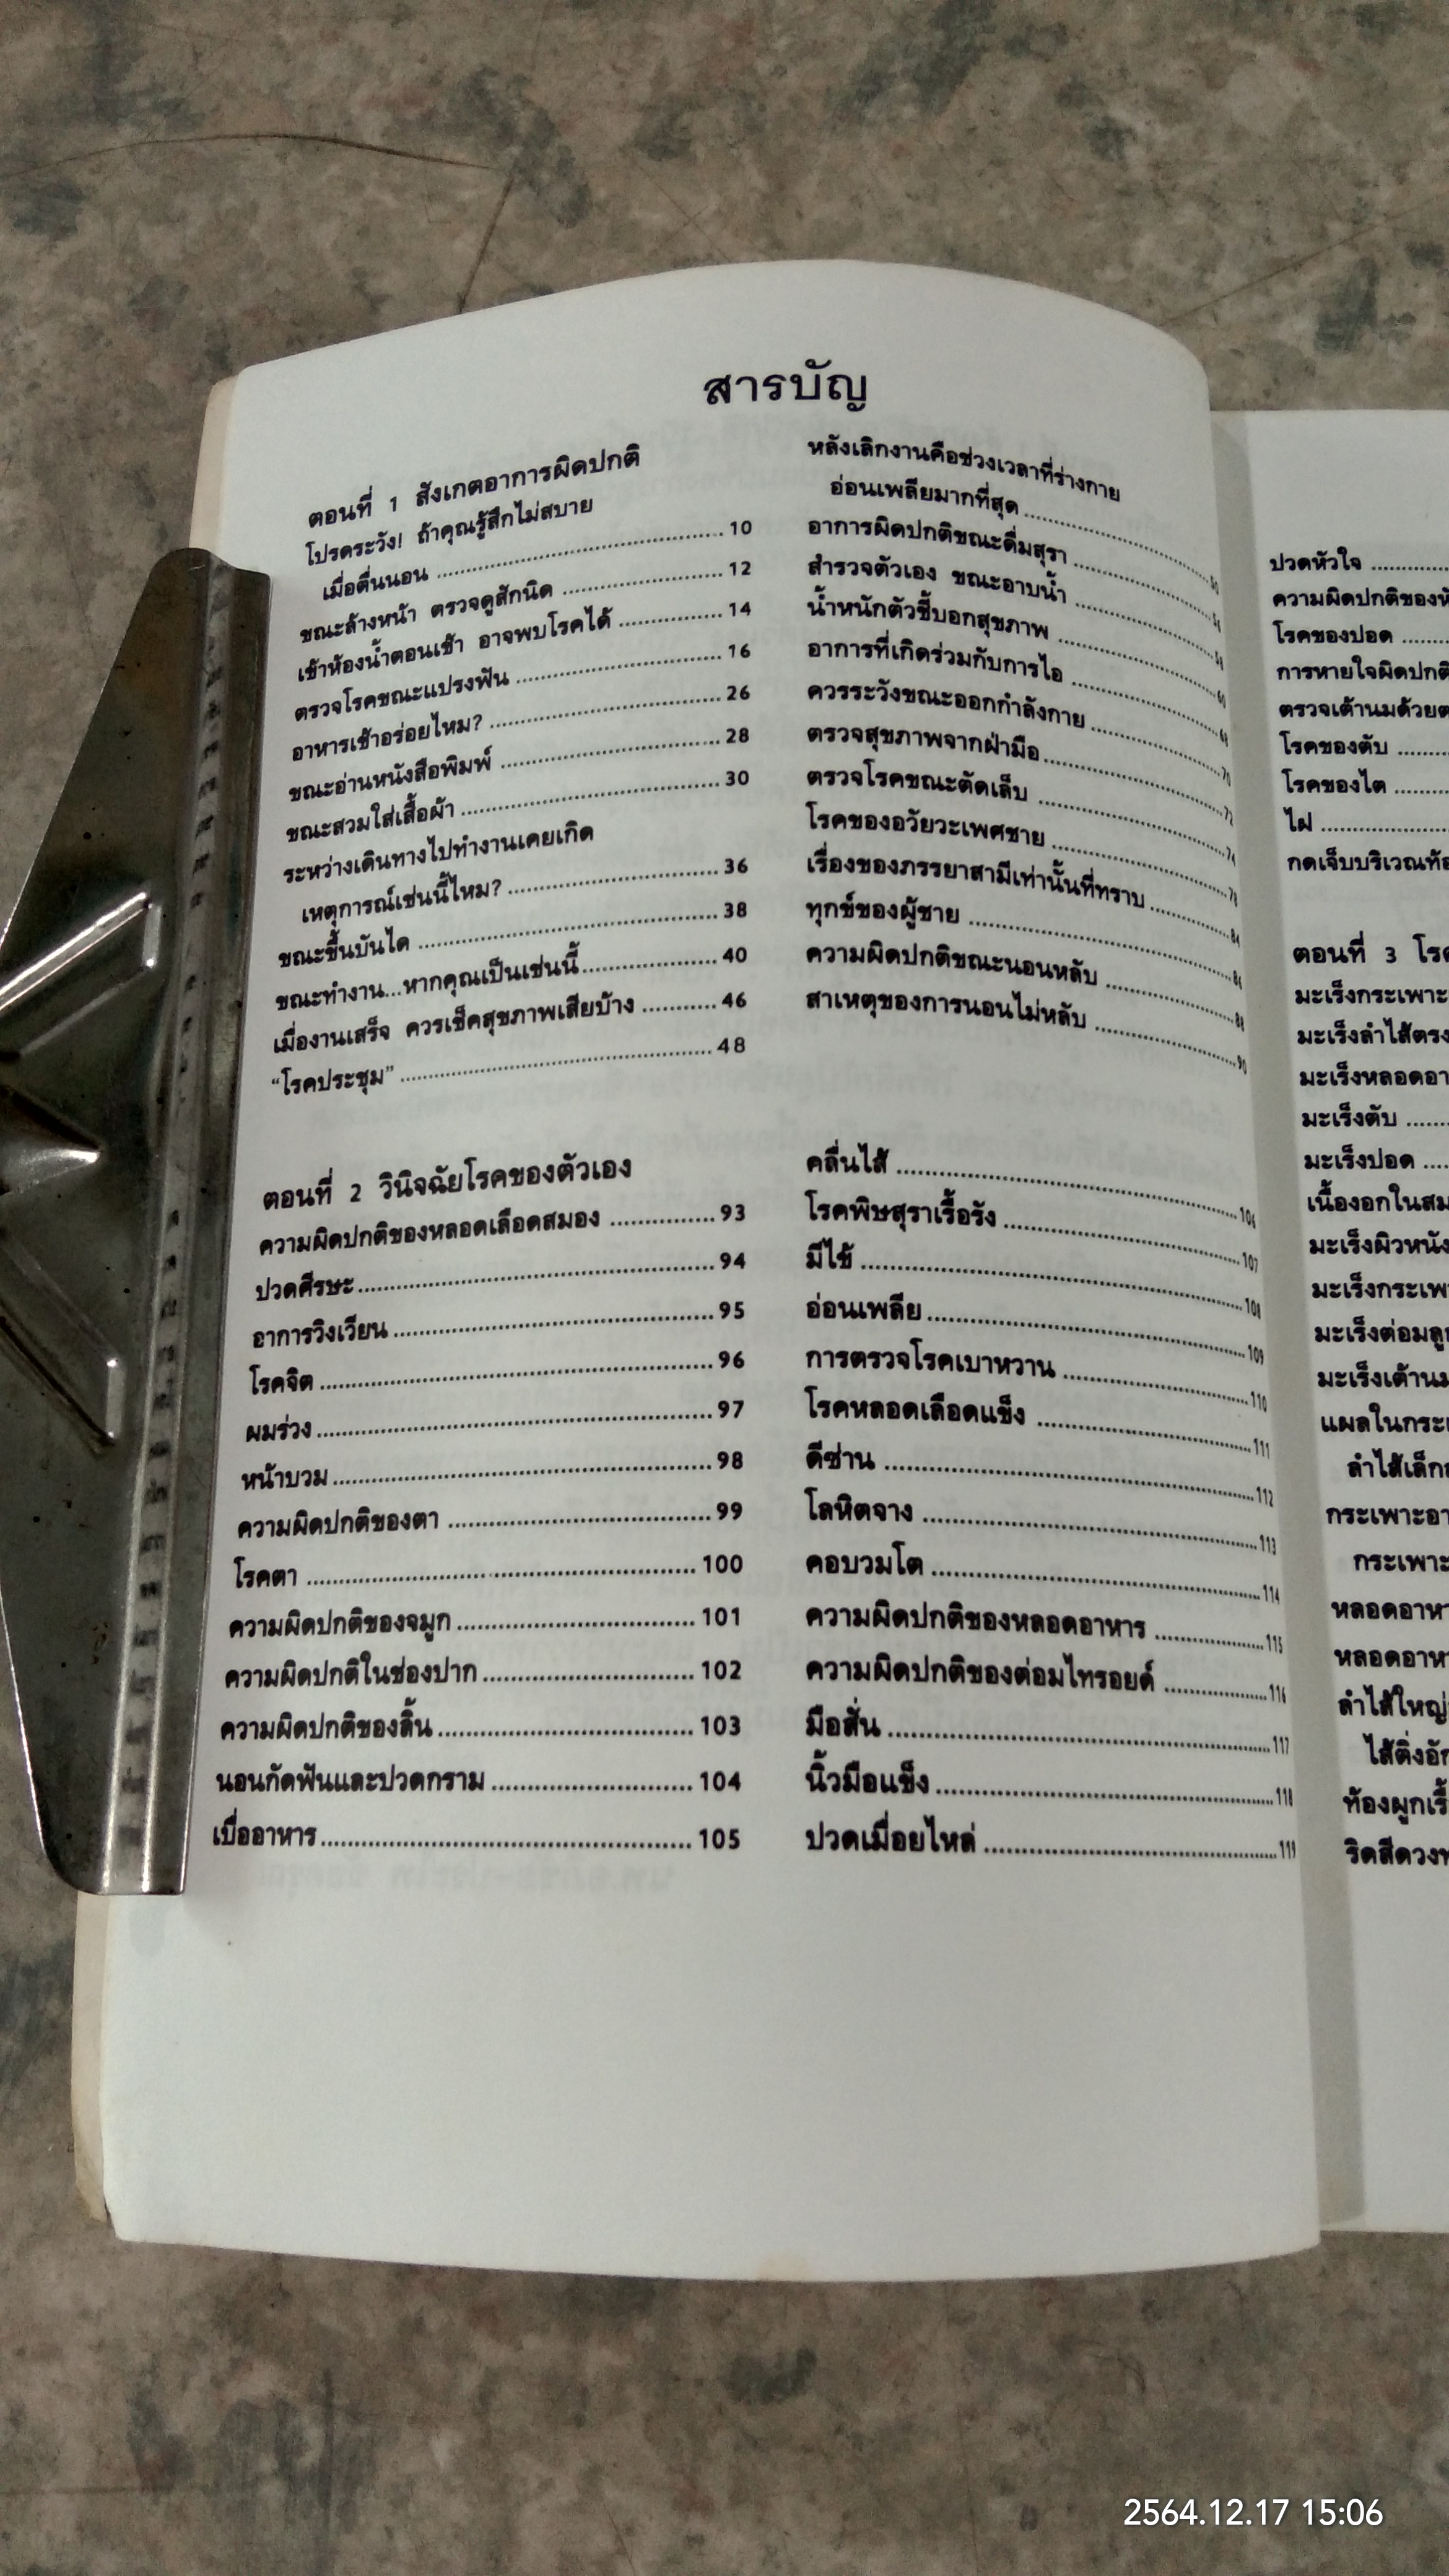 สารบัญ
ตอนที่ 1 สังเกตอาการผิดปกติ
โปรดระวัง! ถ้าคุณรู้สึกไม่สบาย
เมื่อตื่นนอน ........ 10
ขณะล้างหน้า ตรวจดูสักนิด ........ 12
เข้าห้องน้ำตอนเช้า อาจพบโรคได้ ........ 14
ตรวจโรคขณะแปรงฟัน ........ 16
อาหารเช้าอร่อยไหม? ........ 26
ขณะอ่านหนังสือพิมพ์ ........ 28
ขณะสวมใส่เสื้อผ้า ........ 30
ระหว่างเดินทางไปทำงานเคยเกิด
เหตุการณ์เช่นนี้ไหม? ........ 36
ขณะขึ้นบันได ........ 38
ขณะทำงาน...หากคุณเป็นเช่นนี้ ........ 40
เมื่องานเสร็จ ควรเช็คสุขภาพเสียบ้าง ........ 46
“โรคประชุม” ........ 48
หลังเลิกงานคือช่วงเวลาที่ร่างกาย
อ่อนเพลียมากที่สุด ........
อาการผิดปกติขณะดื่มสุรา ........
สำรวจตัวเอง ขณะอาบน้ำ ........
น้ำหนักตัวชี้บอกสุขภาพ ........
อาการที่เกิดร่วมกับการไอ ........
ควรระวังขณะออกกำลังกาย ........ 70
ตรวจสุขภาพจากฝ่ามือ ........ 72
ตรวจโรคขณะตัดเล็บ ........ 74
โรคของอวัยวะเพศชาย ........ 78
เรื่องของภรรยาสามีเท่านั้นที่ทราบ ........ 84
ทุกข์ของผู้ชาย ........ 86
ความผิดปกติขณะนอนหลับ ........ 88
สาเหตุของการนอนไม่หลับ ........ 90
ตอนที่ 2 วินิจฉัยโรคของตัวเอง
ความผิดปกติของหลอดเลือดสมอง ........ 93
ปวดศีรษะ ........ 94
อาการวิงเวียน ........ 95
โรคจิต ........ 96
ผมร่วง ........ 97
หน้าบวม ........ 98
ความผิดปกติของตา ........ 99
โรคตา ........ 100
ความผิดปกติของจมูก ........ 101
ความผิดปกติในช่องปาก ........ 102
ความผิดปกติของลิ้น ........ 103
นอนกัดฟันและปวดกราม ........ 104
เบื่ออาหาร ........ 105
คลื่นไส้ ........ 106
โรคพิษสุราเรื้อรัง ........ 107
มีไข้ ........ 108
อ่อนเพลีย ........ 109
การตรวจโรคเบาหวาน ........ 110
โรคหลอดเลือดแข็ง ........ 111
ดีซ่าน ........ 112
โลหิตจาง ........ 113
คอบวมโต ........ 114
ความผิดปกติของหลอดอาหาร ........ 115
ความผิดปกติของต่อมไทรอยด์ ........ 116
มือสั่น ........ 117
นิ้วมือแข็ง ........ 118
ปวดเมื่อยไหล่ ........ 119
ปวดหัวใจ ........
ความผิดปกติของ
โรคของปอด ........
การหายใจผิดปกติ
ตรวจเต้านมด้วย
โรคของตับ ........
โรคของไต ........
ไฝ ........
กดเจ็บบริเวณ
ตอนที่ 3
มะเร็งกระเพาะ
มะเร็งลำไส้ตรง
มะเร็งหลอดอา
มะเร็งตับ ........
มะเร็งปอด ....
เนื้องอกในสม
มะเร็งผิวหนัง
มะเร็งกระเพา
มะเร็งต่อมลู
มะเร็งเต้านม
แผลในกระเ
ลำไส้เล็ก
กระเพาะอา
กระเพาะ
หลอดอาหา
หลอดอาหา
ลำไส้ใหญ่
ไส้ติ่งอัก
ท้องผูกเรื้
ริดสีดวง
2564.12.17 15:06